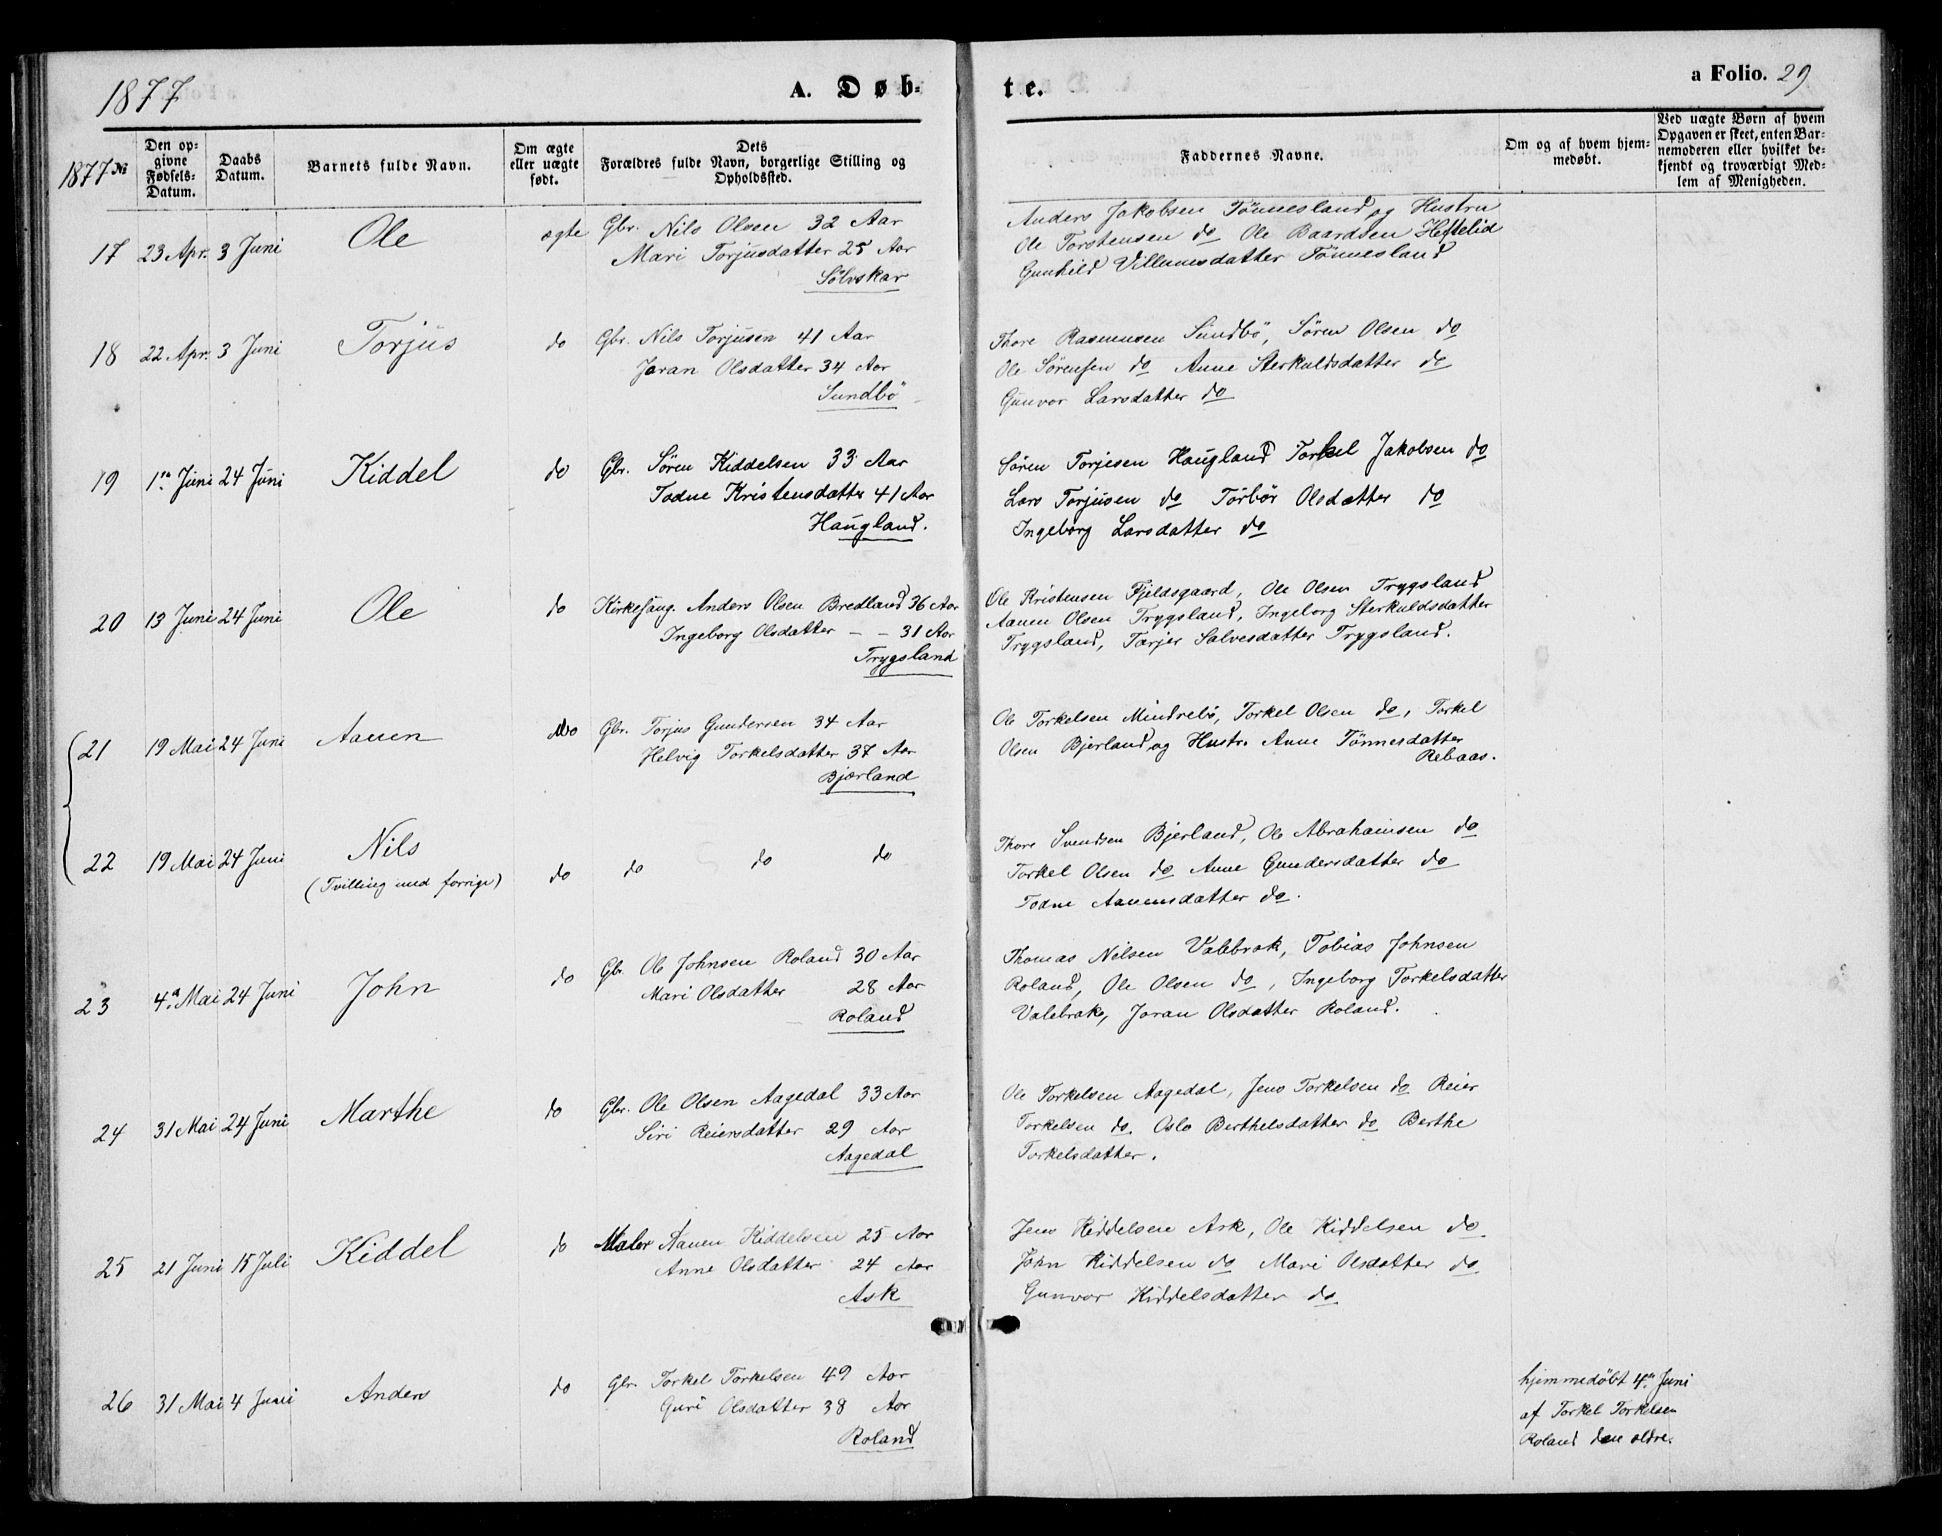 1877
A. Døb-
te.
a Folio. 29
1877 №
Den op-
givne
Fødsels-
Datum.
Daabs
Datum.
Barnets fulde Navn.
Om ægte
eller uægte
født.
Dets
Forældres fulde Navn, borgerlige Stilling og
Opholdssted.
Faddernes Navne.
Om og af hvem hjem-
medøbt.
Ved uægte Børn af hvem
Opgaven er skeet, enten Bar-
nemoderen eller hvilket be-
kjendt og troværdigt Med-
lem af Menigheden.
17 23 Apr. 3 Juni Ole ægte Gbr. Nils Olsen 32 Aar
Mari Torjusdatter 25 Aar
Sølvskar
Anders Jakobsen Tönnesland og Hustru
Ole Torstensen do Ole Baardsen Heftelid
Gunhild Villumsdatter Tönnesland
18 22 Apr. 3 Juni Torjus do Gbr. Nils Torjusen 41 Aar
Joran Olsdatter 34 Aar
Sundbö
Thore Rasmussen Sundbö, Sören Olsen do
Ole Sörensen do Anne Sterkuldsdatter do
Gunvor Larsdatter do
19 1ste Juni 24 Juni Kiddel do Gbr. Sören Kiddelsen 33 Aar
Todne Kristensdatter 41 Aar
Haugland.
Sören Torjesen Haugland Torkel Jakobsen do
Lars Torjusen do Torbör Olsdatter do
Ingeborg Larsdatter do
20 13 Juni 24 Juni Ole do Kirkesang. Anders Olsen Bredland 36 Aar
Ingeborg Olsdatter - - 31 Aar
Trygsland
Ole Kristensen Fjeldsgaard, Ole Olsen Trygsland
Aanen Olsen Trygsland, Ingeborg Sterkuldsdatter
Trygsland, Tarjer Salvesdatter Trygsland.
21 19 Mai 24 Juni Aanen do Gbr. Torjus Gundersen 34 Aar
Helvig Torkelsdatter 37 Aar
Bjærland
Ole Torkelsen Mindrebö, Torkel Olsen do, Torkel
Olsen Bjerland og Hustr. Anne Tönnesdatter
Rebaas.
22 19 Mai 24 Juni Nils
(Tvilling med forrige)
do do do do
Thore Svendsen Bjerland, Ole Abrahamsen do
Torkel Olsen do Anne Gundersdatter do
Todne Aanensdatter do.
23 4de Mai 24 Juni John do Gb. Ole Johnsen Roland 30 Aar
Mari Olsdatter 28 Aar
Roland
Thomas Nilsen Valebrok, Tobias Johnsen
Roland, Ole Olsen do, Ingeborg Torkelsdatter
Valebrok, Joran Olsdatter Roland.
24 31 Mai 24 Juni Marthe do Gbr. Ole Olsen Aagedal 33 Aar
Siri Reiersdatter 29 Aar
Aagedal
Ole Torkelsen Aagedal, Jens Torkelsen do Reier
Torkelsen do. Oslo Berthelsdatter do Berthe
Torkelsdatter.
25 21 Juni 15 Juli Kiddel do Maler Aanen Kiddelsen 25 Aar
Anne Olsdatter 24 Aar
Ask
Jens Kiddelsen Ask, Ole Kiddelsen do.
John Kiddelsen do Mari Olsdatter do
Gunvor Kiddelsdatter do
26 31 Mai 4 Juni Anders do Gbr. Torkel Torkelsen 49 Aar
Guri Olsdatter 38 Aar
Roland
hjemmedøbt 4de Juni
af Torkel Torkelsen
Roland den ældre.